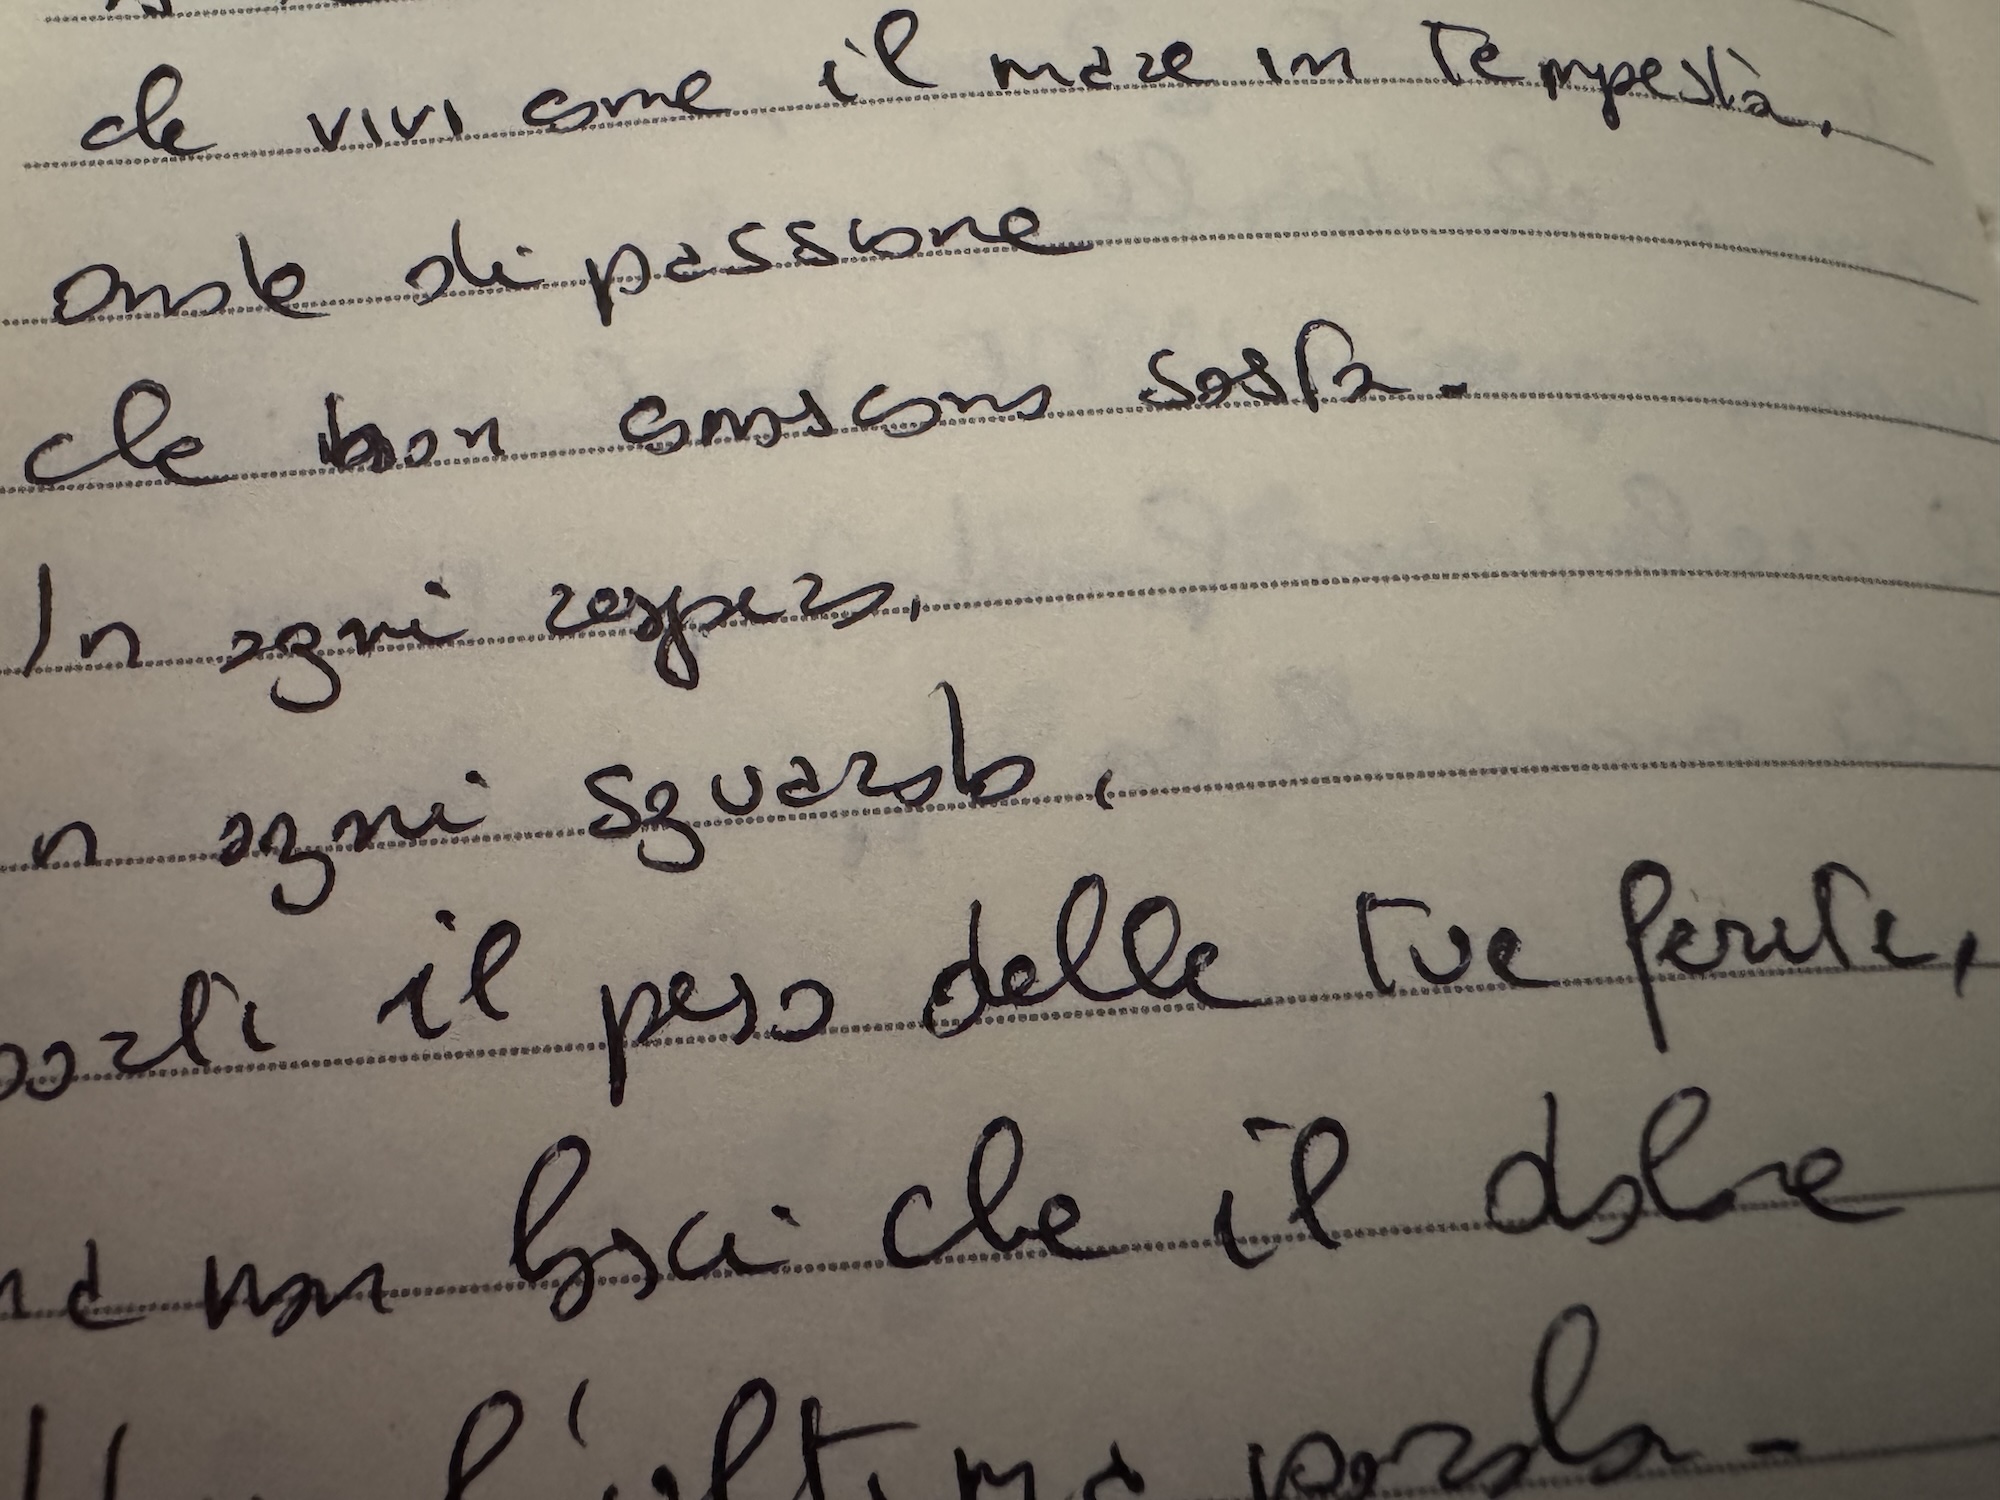 che vivi come il mare in tempesta,
onde di passione
che non conoscono sosta.
In ogni respiro,
in ogni sguardo,
porti il peso delle tue ferite,
ma non lasci che il dolore
l'ultima parola.